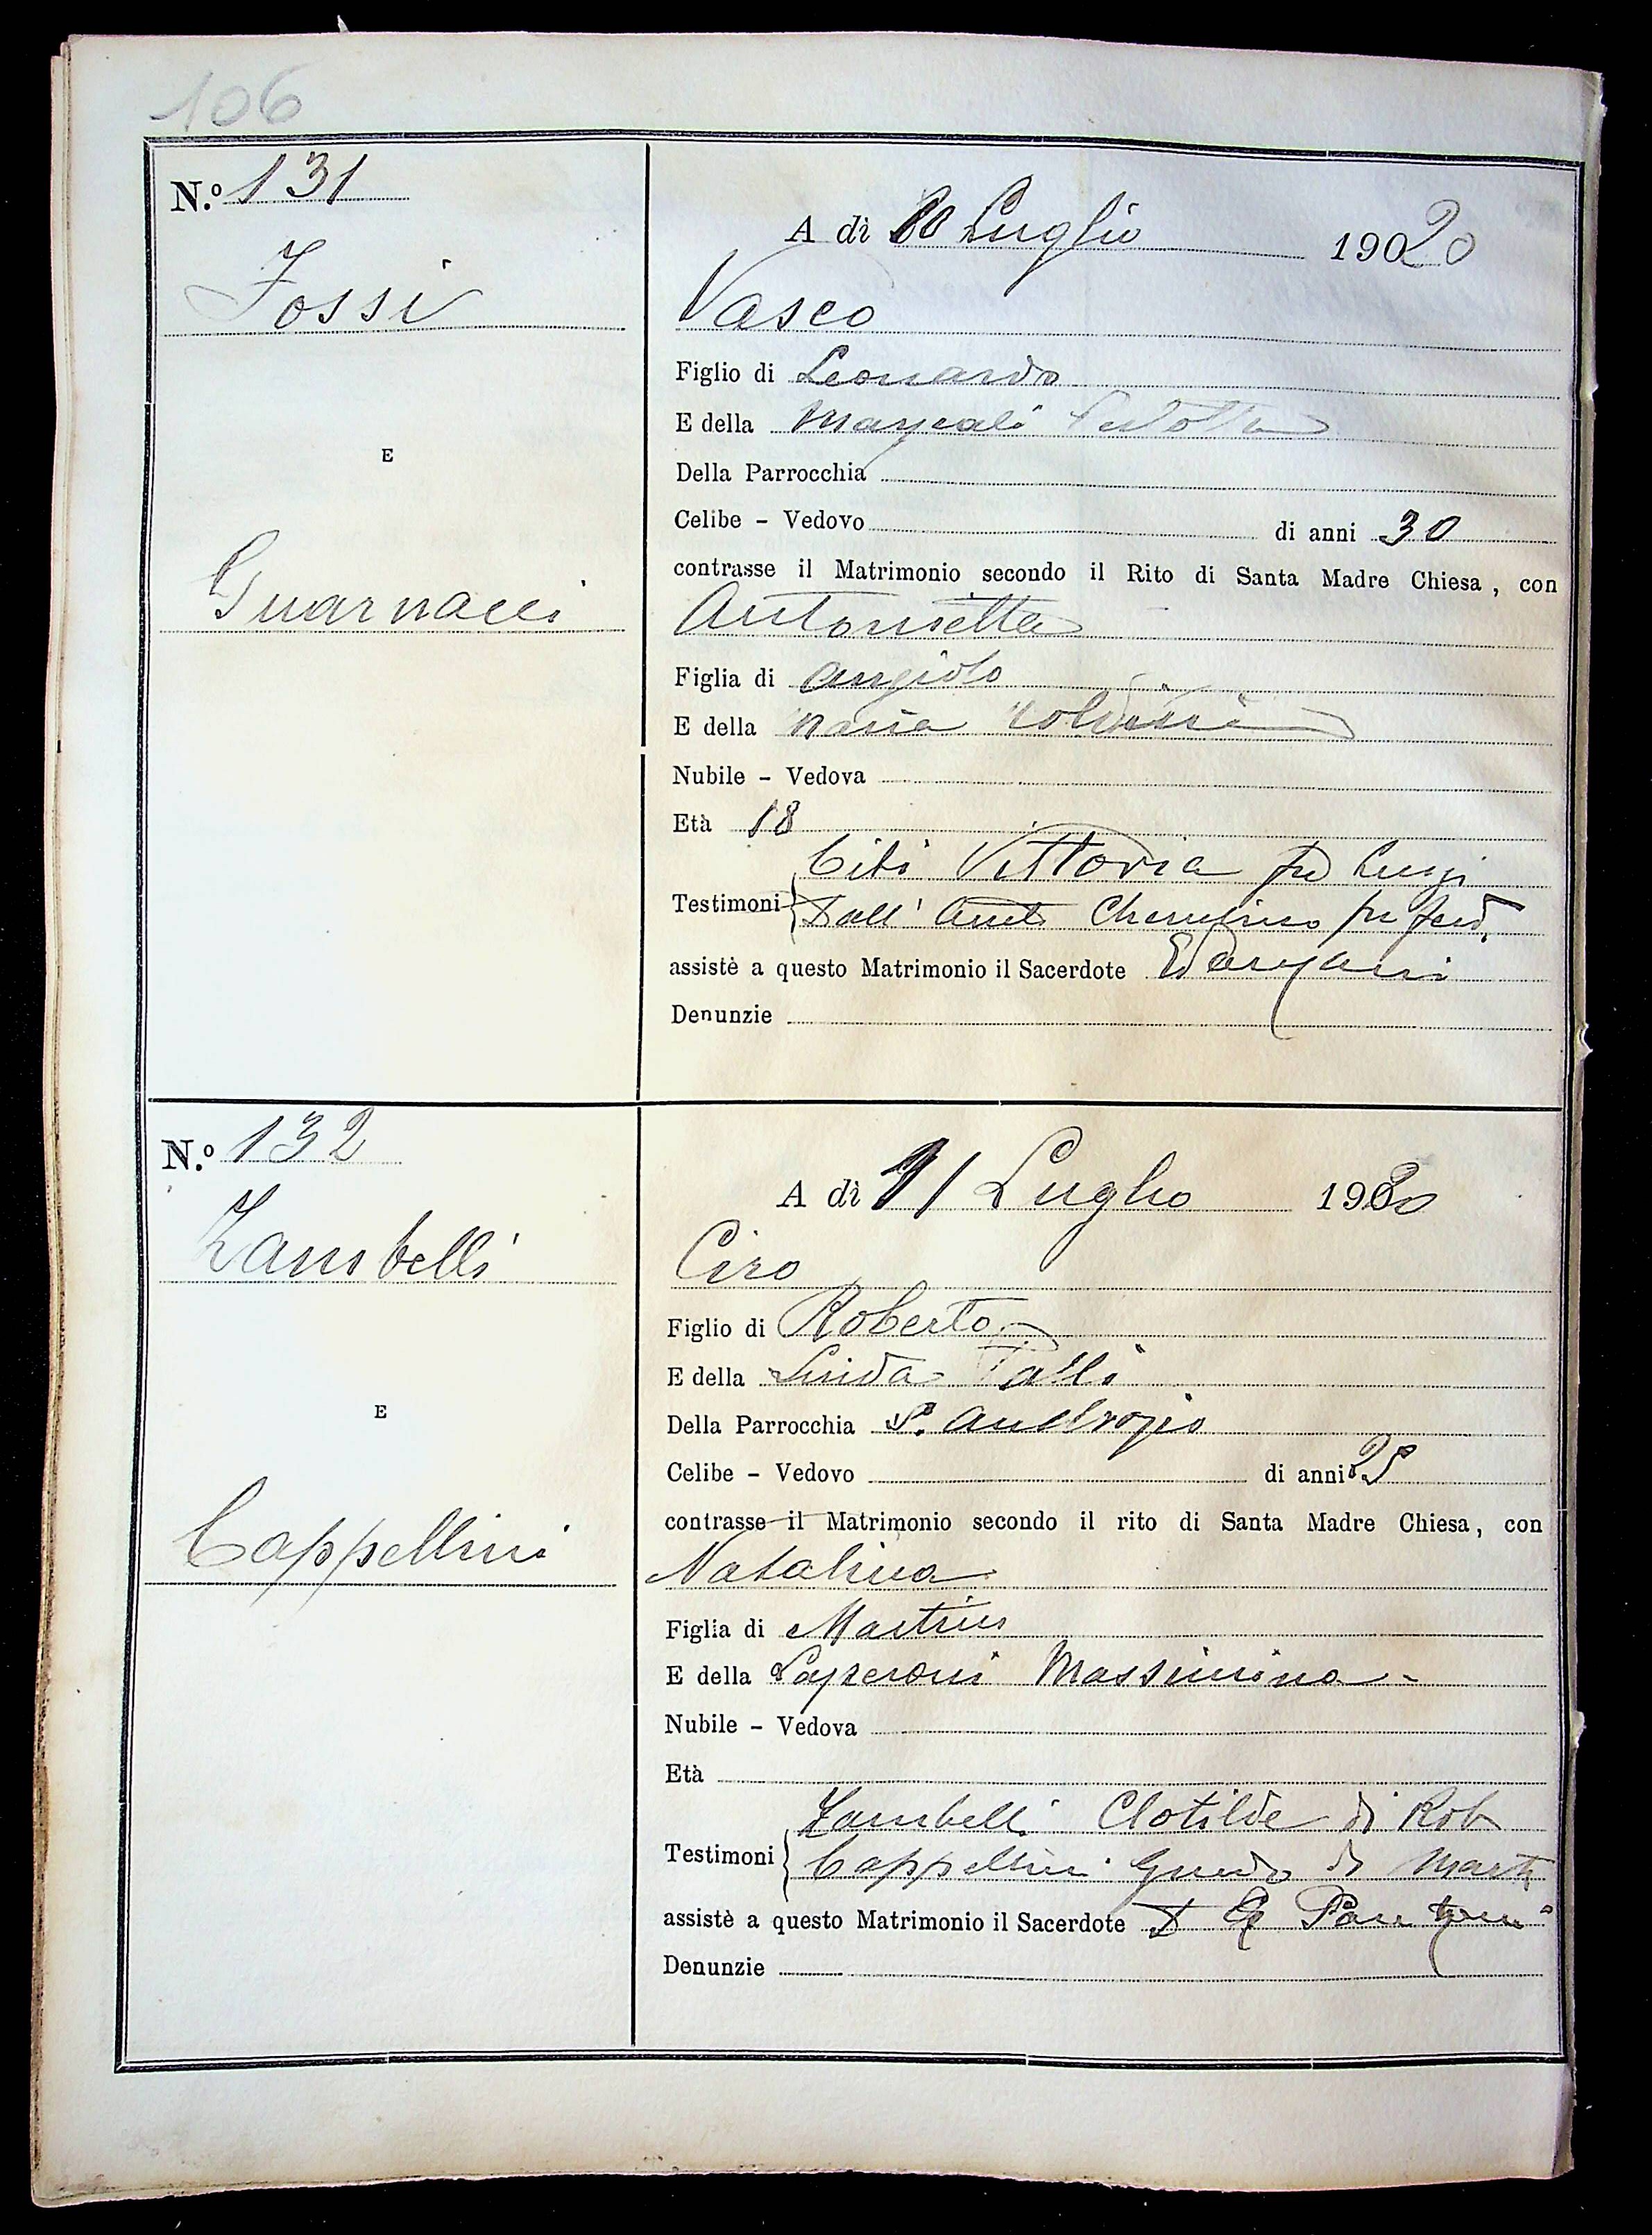 106
N.º 131
A dì 10 Luglio 19020
Fossi
Vasco
Figlio di Leonardo
E della
E
Della Parrocchia
Celibe - Vedovo di anni 30
contrasse il Matrimonio secondo il Rito di Santa Madre Chiesa, con
Guarnacci
Antonietta
Figlia di Angiolo
E della Maria
Nubile - Vedova
Età 18
Citi Vittoria fu Luigi
Testimoni Dall' Cherubino fu Ferd.
assistè a questo Matrimonio il Sacerdote
Denunzie
N.º 132
A dì 11 Luglio 1920
Zambelli
Ciro
Figlio di Roberto
E della Linda
E
Della Parrocchia S. Ambrogio
Celibe - Vedovo di anni 25
contrasse il Matrimonio secondo il rito di Santa Madre Chiesa, con
Cappellini
Natalina
Figlia di Martino
E della Massimina
Nubile - Vedova
Età
Zambelli Clotilde di Rob
Testimoni Cappellini Guido di Mart
assistè a questo Matrimonio il Sacerdote
Denunzie